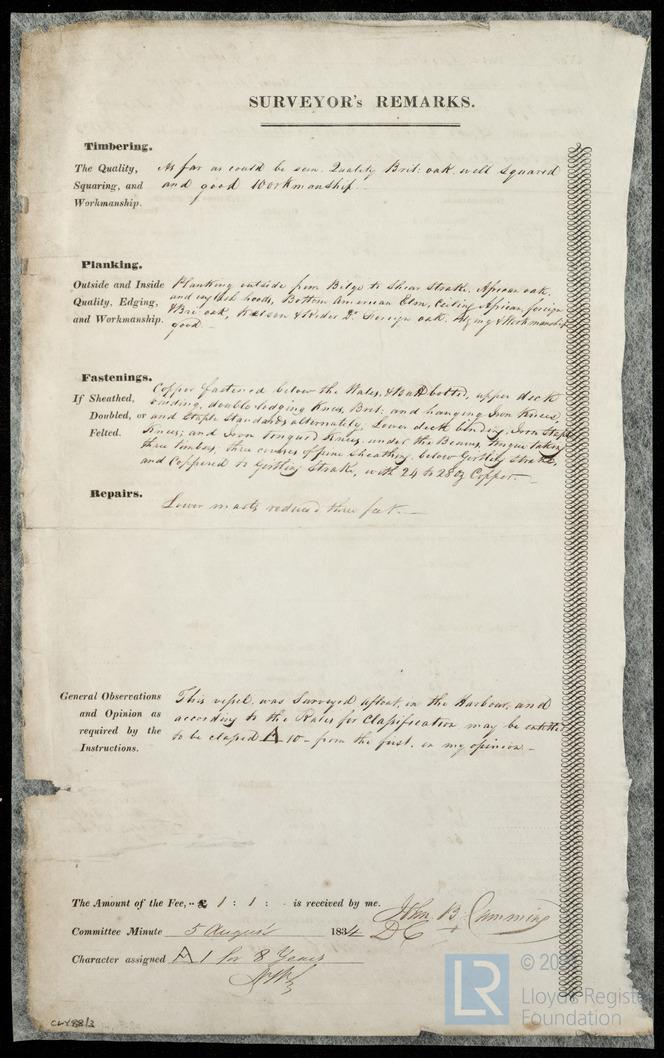 SURVEYOR's REMARKS.
Timbering.
The Quality, Squaring, and Workmanship.
As far as could be seen. Quality Brit: oak. well squared
and good Workmanship. –
Planking.
Outside and Inside Quality, Edging, and Workmanship.
Planking outside from Bilge to Shear Strake. African oak.
and english hoods, Bottom American Elm, Ceiling African, foreign
& Bri: oak, Kelson & Rider Do. Foreign oak. Edging & Workmanship
good –
Fastenings.
If Sheathed, Doubled, or Felted.
Copper fastened below the Wales, & Butt bolted, upper deck
binding, double lodging Knees, Brit: and hanging Iron Knees
and Staple Standards alternately, Lower deck binding, Iron Staple
Knees; and Iron Tongued Knees, under the Beams, Tongue taking
three timbers, three courses of pine Sheathing, below Strake,
and Coppered to Strake, with 24 to 28 oz Copper. –
Repairs.
Lower masts reduced three feet. –
General Observations and Opinion as required by the Instructions.
This vessel, was Surveyed afloat, in the Harbour, and
according to the Rules for Classification may be entitled
to be classed A 10 – from the first. in my opinion –
The Amount of the Fee, £ 1 : 1 : - is received by me.
John B: Cumming
Committee Minute 5 August 1834
Character assigned A 1 for 8 Years
CWY88/3
LR
© 20
Lloyd's Register
Foundation